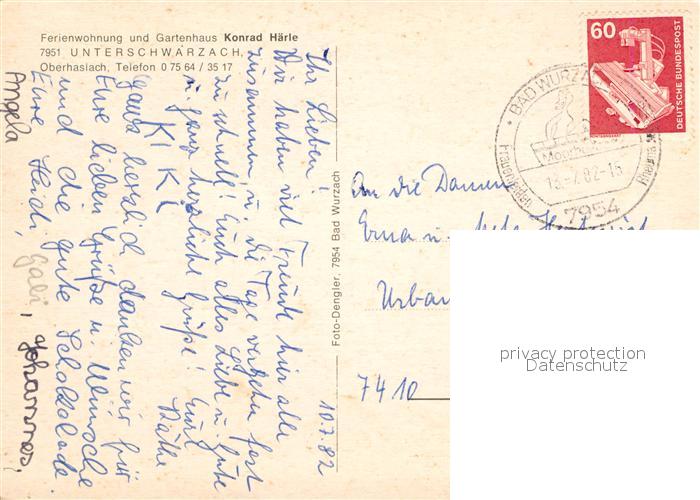 Ferienwohnung und Gartenhaus Konrad Härle
7951 UNTERSCHWARZACH,
Oberhaslach, Telefon 0 75 64 / 35 17
10.7.82
Ihr Lieben!
Wir haben viel Freude hier alle
zusammen, u. die Tage vergehn fast
zu schnell! Euch alles Liebe u. Gute
u. ganz herzliche Grüße! Eure
Käthe
KIKI
ganz herzlich danken wir für
Eure lieben Grüße u. Wünsche
und die gute Schokolade.
Eure Heidi, Gabi, Johannes,
Angela
Foto-Dengler, 7954 Bad Wurzach
60
DEUTSCHE BUNDESPOST
BAD WURZA
7954
An die Damen
Erna u.
Urba
7410
privacy protection
Datenschutz